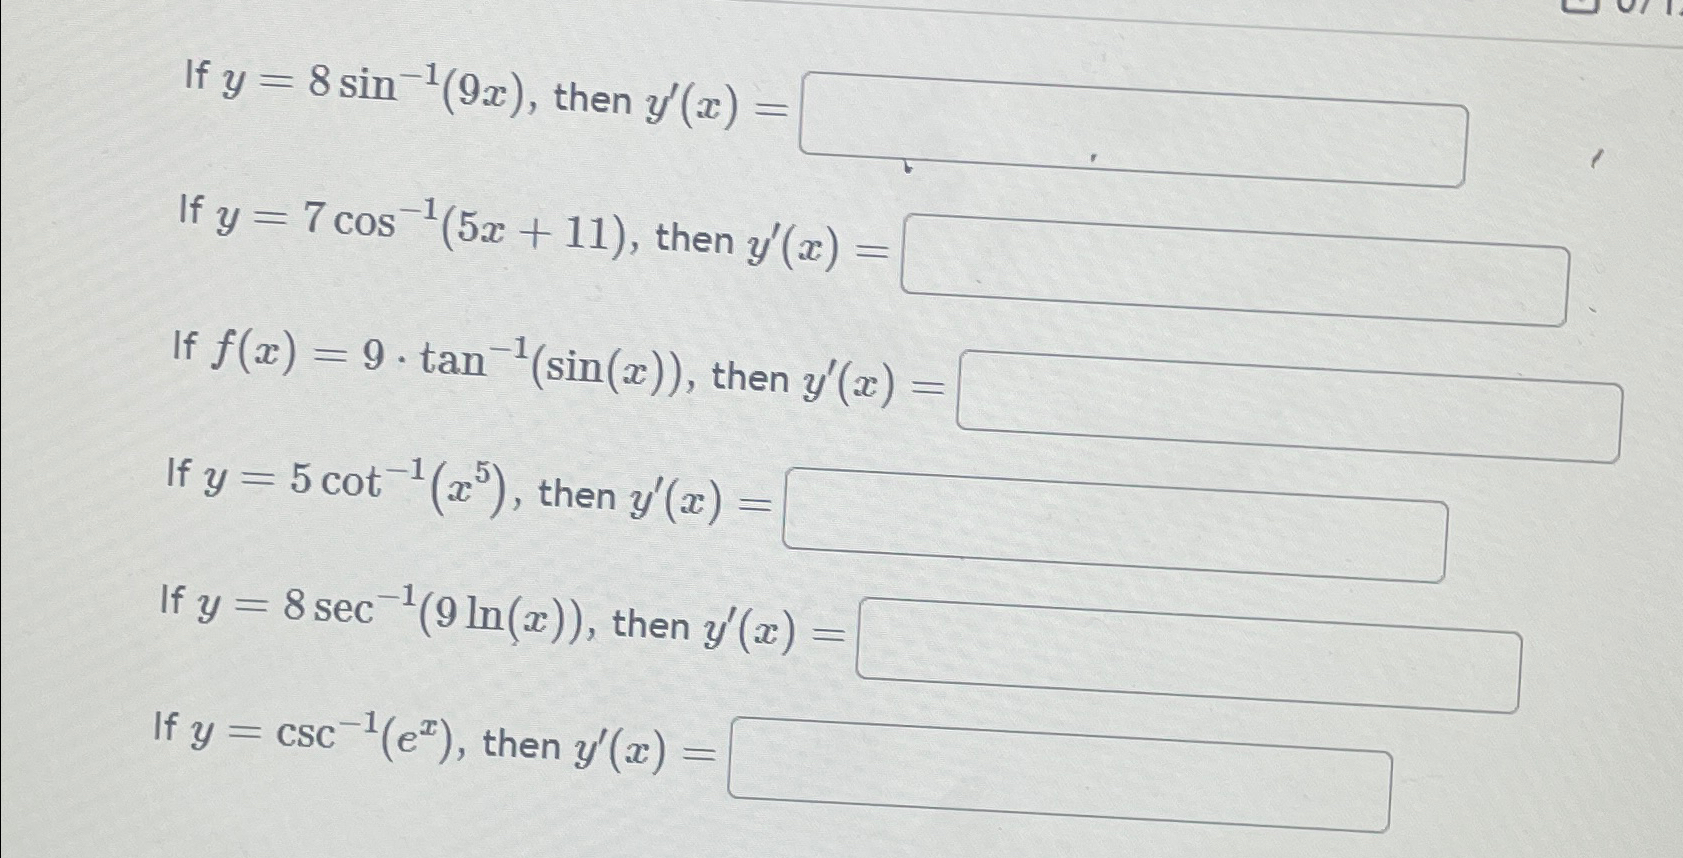 If y = 8 sin⁻¹(9x), then y′(x) =
If y = 7 cos⁻¹(5x + 11), then y′(x) =
If f(x) = 9 · tan⁻¹(sin(x)), then y′(x) =
If y = 5 cot⁻¹(x⁵), then y′(x) =
If y = 8 sec⁻¹(9 ln(x)), then y′(x) =
If y = csc⁻¹(eˣ), then y′(x) =